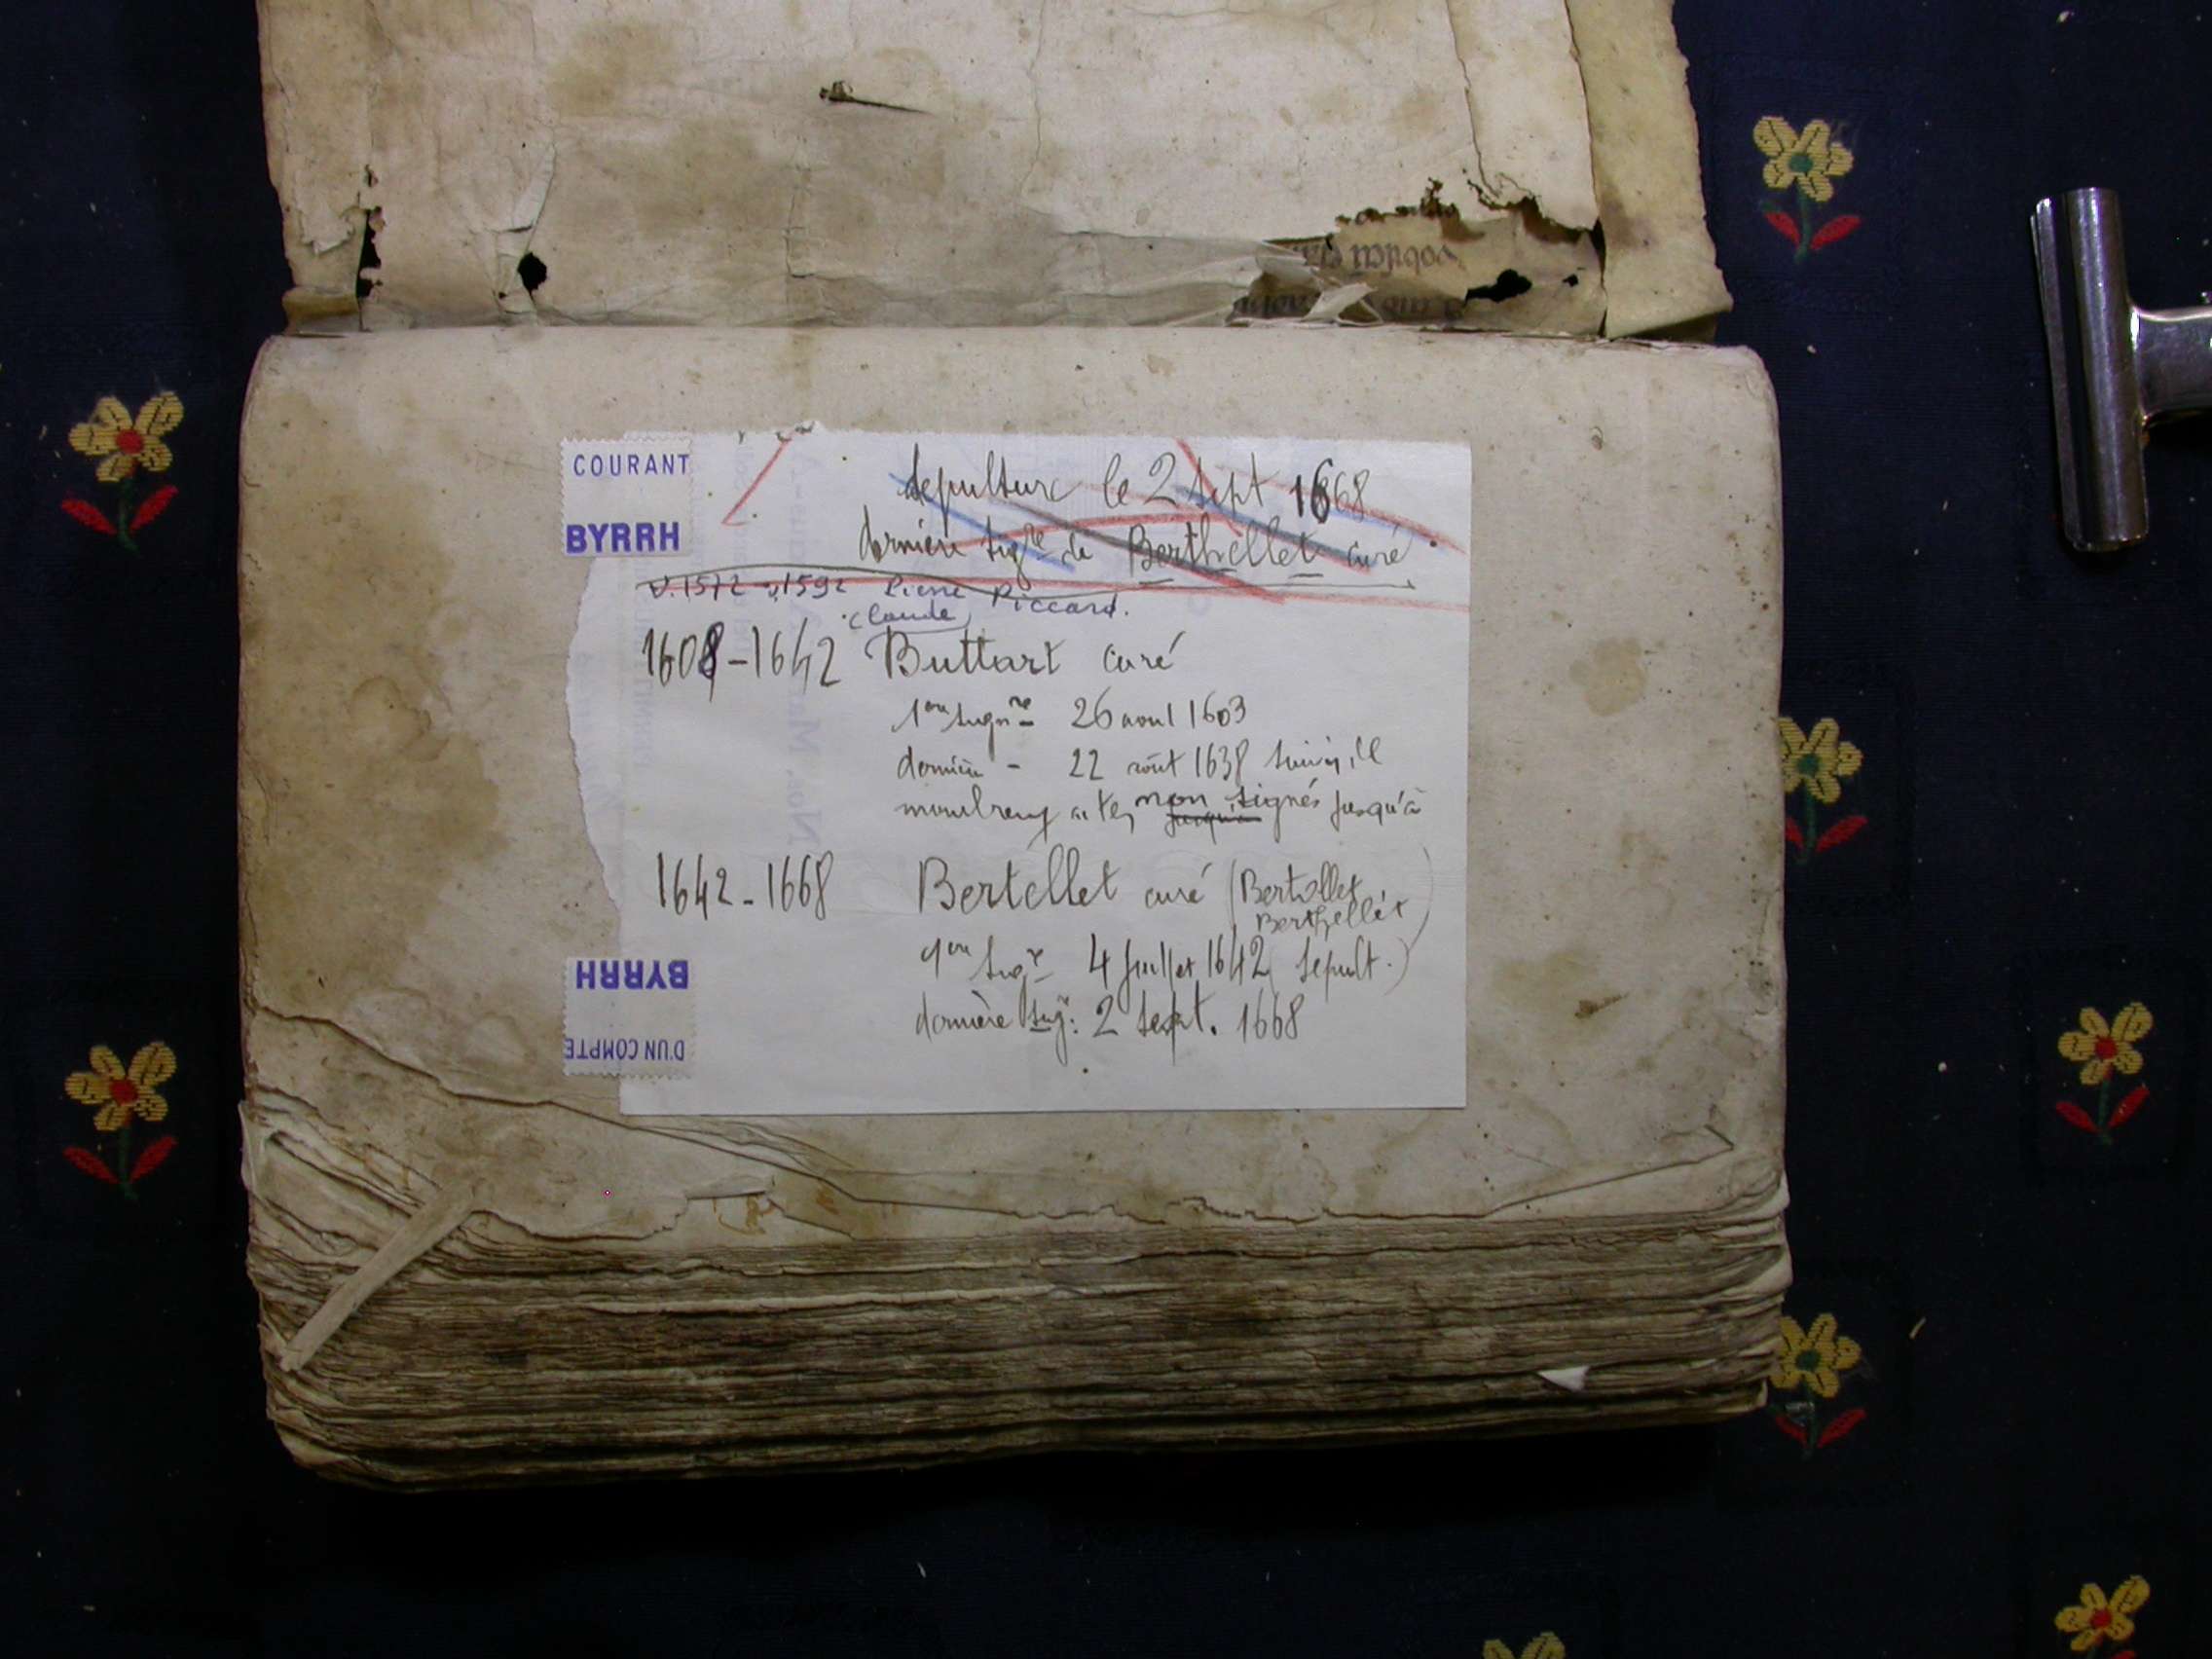 COURANT
BYRRH
Sepulture le 2 Sept 1668
dernière sigre de Berthellet curé
v.1572 v.1592 Pierre Piccard.
(Claude)
1608-1642 Buttart curé
1ere signre 26 aout 1603
dernière - 22 août 1638 suivi, il
actes non signés jusqu'à
1642-1668 Bertellet curé (Bertollet
Berthellet)
1ere sigre 4 Juillet 1642 Sepult.)
dernière sig: 2 Sept. 1668
BYRRH
D'UN COMPTE